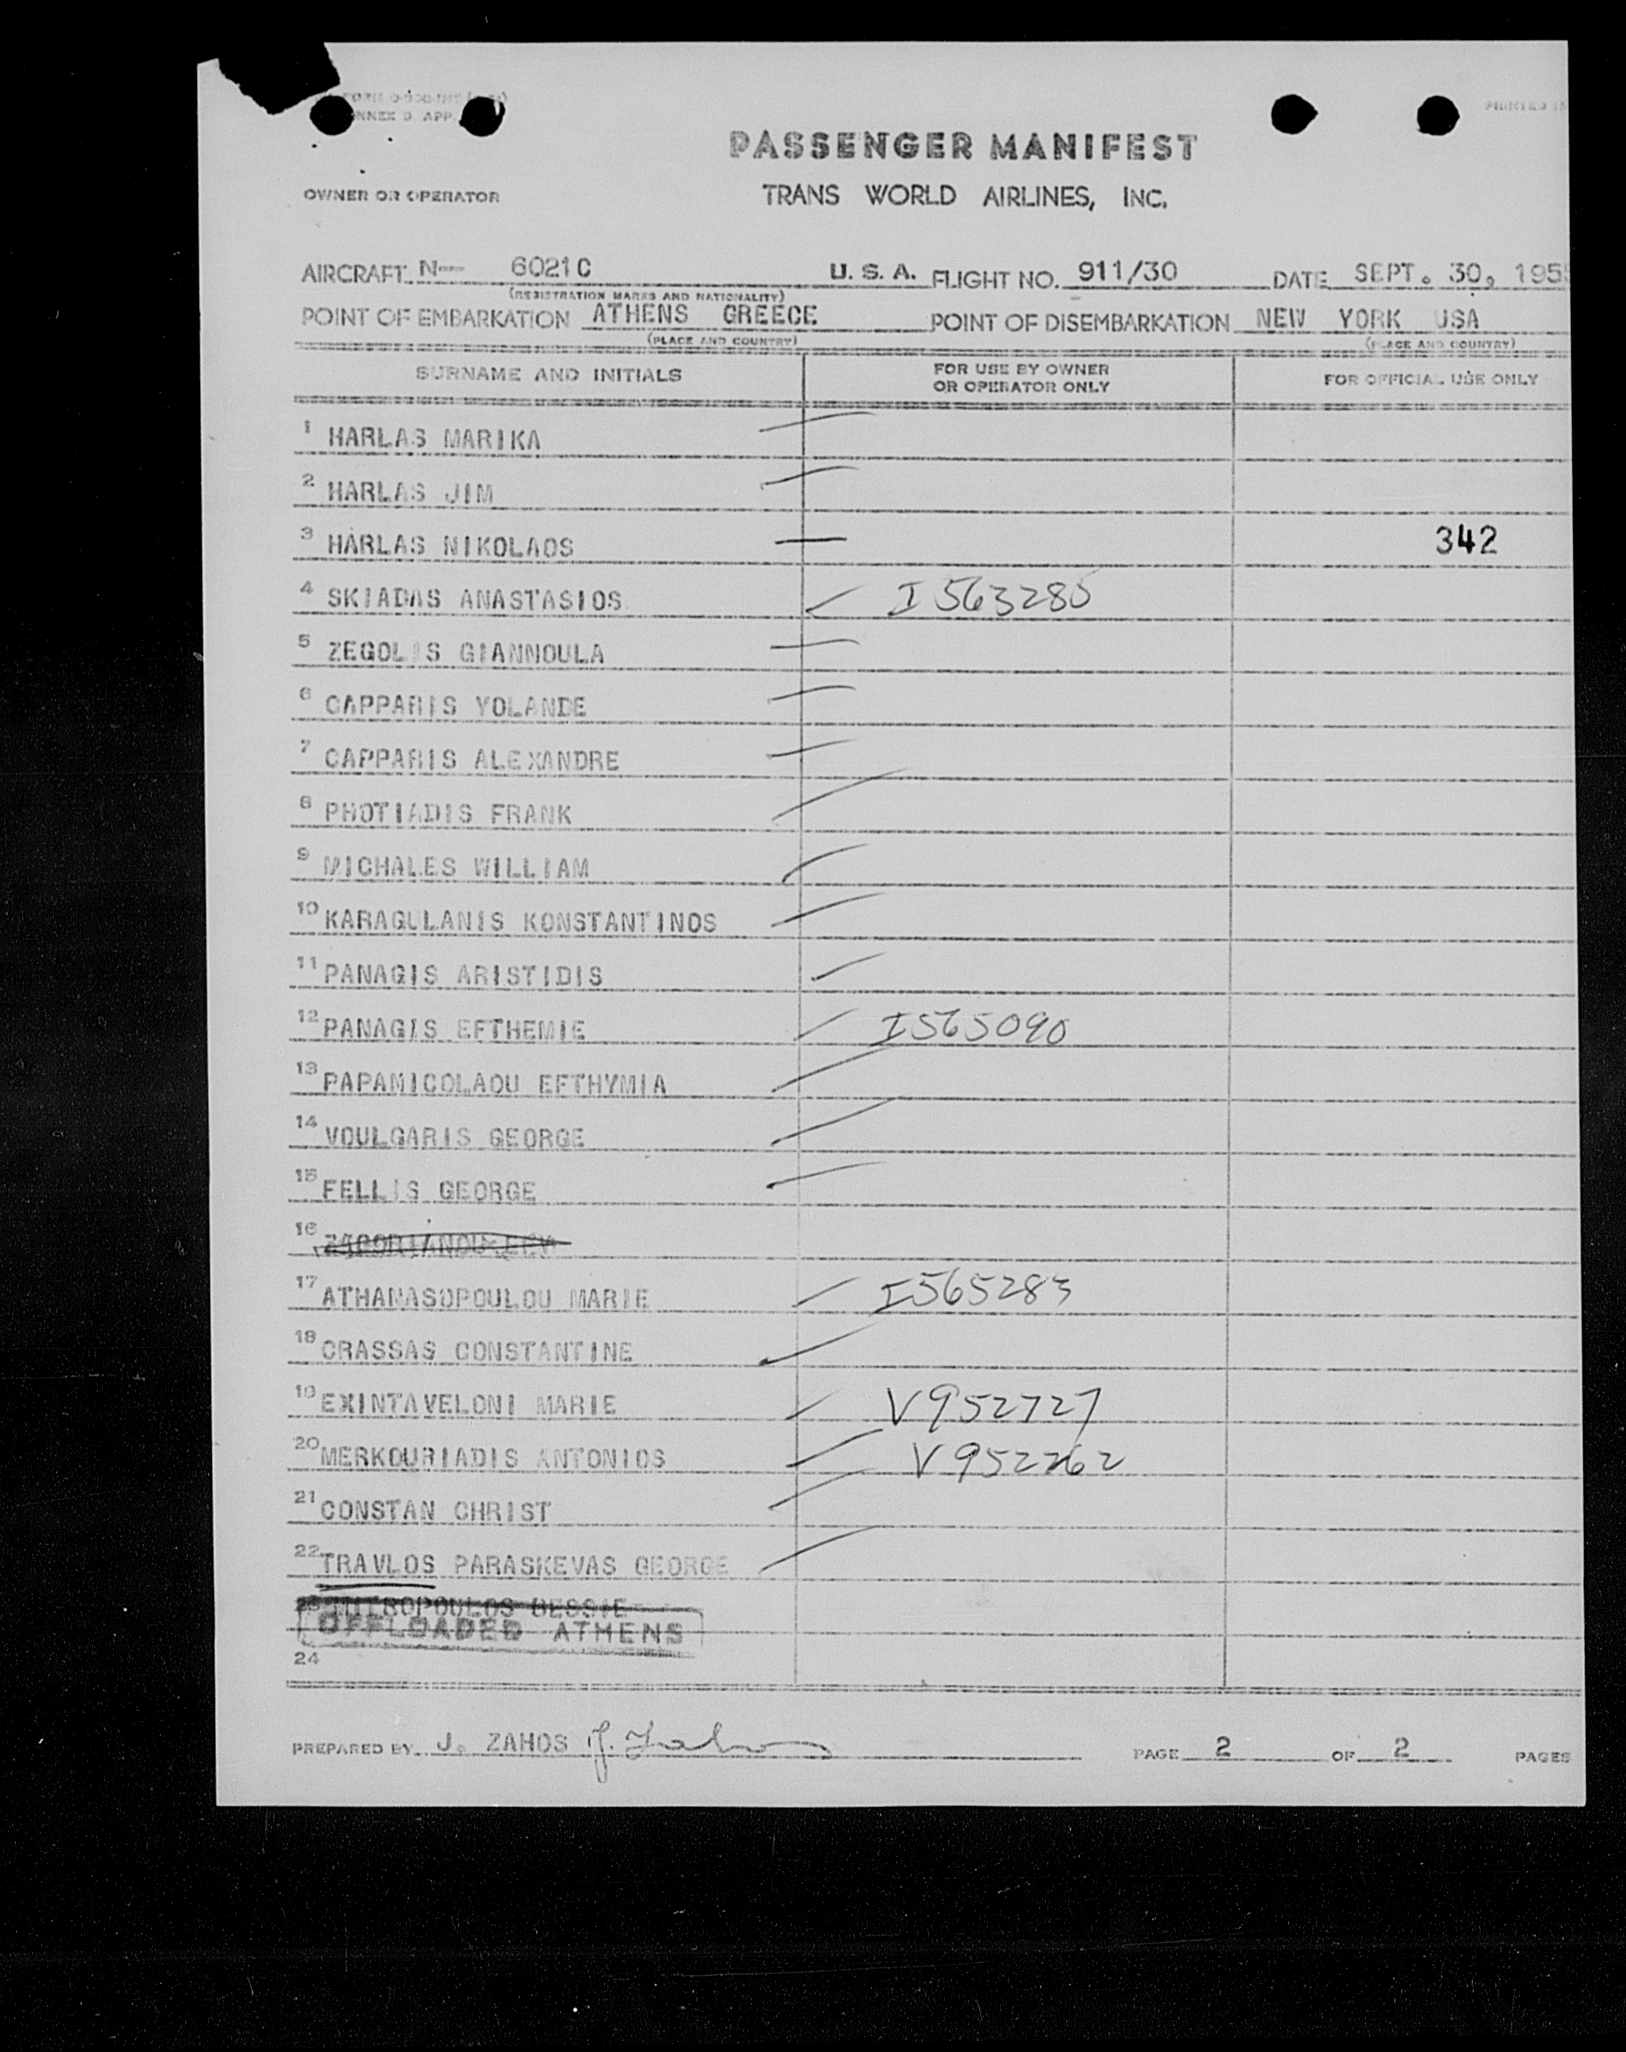 ANNEX 9 APP.
PRINTED IN
PASSENGER MANIFEST
OWNER OR OPERATOR
TRANS WORLD AIRLINES, INC.
AIRCRAFT N-- 6021C U. S. A. FLIGHT NO. 911/30 DATE SEPT. 30, 1955
(REGISTRATION MARKS AND NATIONALITY)
POINT OF EMBARKATION ATHENS GREECE POINT OF DISEMBARKATION NEW YORK USA
(PLACE AND COUNTRY) (PLACE AND COUNTRY)
SURNAME AND INITIALS FOR USE BY OWNER OR OPERATOR ONLY FOR OFFICIAL USE ONLY
1 HARLAS MARIKA
2 HARLAS JIM
3 HARLAS NIKOLAOS 342
4 SKIADAS ANASTASIOS I563285
5 ZEGOLIS GIANNOULA
6 CAPPARIS YOLANDE
7 CAPPARIS ALEXANDRE
8 PHOTIADIS FRANK
9 MICHALES WILLIAM
10 KARAGULANIS KONSTANTINOS
11 PANAGIS ARISTIDIS
12 PANAGIS EFTHEMIE I565090
13 PAPANICOLAOU EFTHYMIA
14 VOULGARIS GEORGE
15 FELLIS GEORGE
16
17 ATHANASOPOULOU MARIE I565283
18 CRASSAS CONSTANTINE
19 EXINTAVELONI MARIE V952727
20 MERKOURIADIS ANTONIOS V952262
21 CONSTAN CHRIST
22 TRAVLOS PARASKEVAS GEORGE
23 BESSIE
OFFLOADED ATHENS
24
PREPARED BY J. ZAHOS J. Zahos PAGE 2 OF 2 PAGES